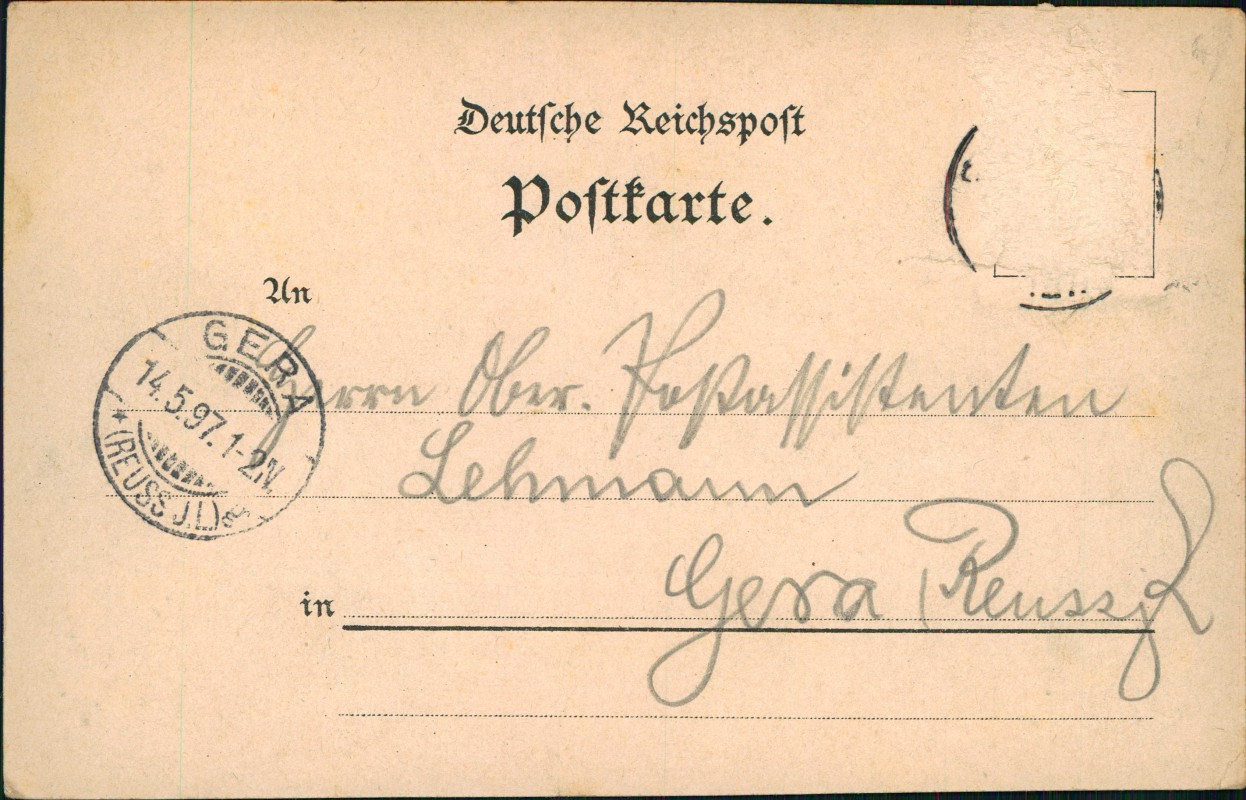 Deutsche Reichspost
Postkarte.
An
GERA
14.5.97. 1-2N.
* (REUSS J.L.) a
Herrn Ober. Postassistenten
Lehmann
in Gera Reuss j L